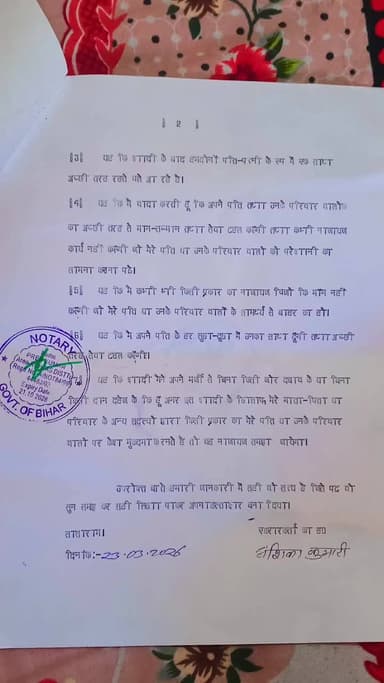 [ 2 ]
[3] यह कि शादी के बाद हमदोनों पति-पत्नी के रूप में एक साथ
अच्छी तरह रहते चले आ रहे है।
[4] यह कि मैं वादा करती हूं कि अपने पति तथा उनके परिवार वालों
का अच्छी तरह से मान-सम्मान तथा सेवा टहल करूंगी तथा कभी नाजायज
कार्य नहीं करूंगी जो मेरे पति या उनके परिवार वालों को परेशानी का
सामना करना पड़े।
[5] यह कि मैं कभी भी किसी प्रकार का नाजायज किसी कि मांग नहीं
करूंगी जो मेरे पति या उनके परिवार वालों के सामर्थ्य से बाहर का हो।
[6] यह कि मैं अपने पति के हर सुख-दुख में उनका साथ दूंगी तथा अच्छी
तरह सेवा टहल करूंगी।
यह कि शादी मैंने अपने मर्जी से बिना किसी जोर दबाव के या बिना
किसी दान दहेज के कि हूं अगर इस शादी के खिलाफ मेरे माता-पिता या
परिवार के अन्य सदस्यों द्वारा किसी प्रकार का मेरे पति या उनके परिवार
वालों पर केश मुकदमा करते है तो वह नाजायज समझा जायेगा।
उपरोक्त बातें हमारी जानकारी में सही वो सत्य है जिसे पढ़ वो
सुन समझ कर सही लिखा पाकर अपना हस्ताक्षर बना दिया।
सासाराम।
शपथकर्ता का ह0
दिनांक:- 23.03.2026
अंशिका कुमारी
NOTARY
Expiry Date
21.10.2028
GOVT. OF BIHAR